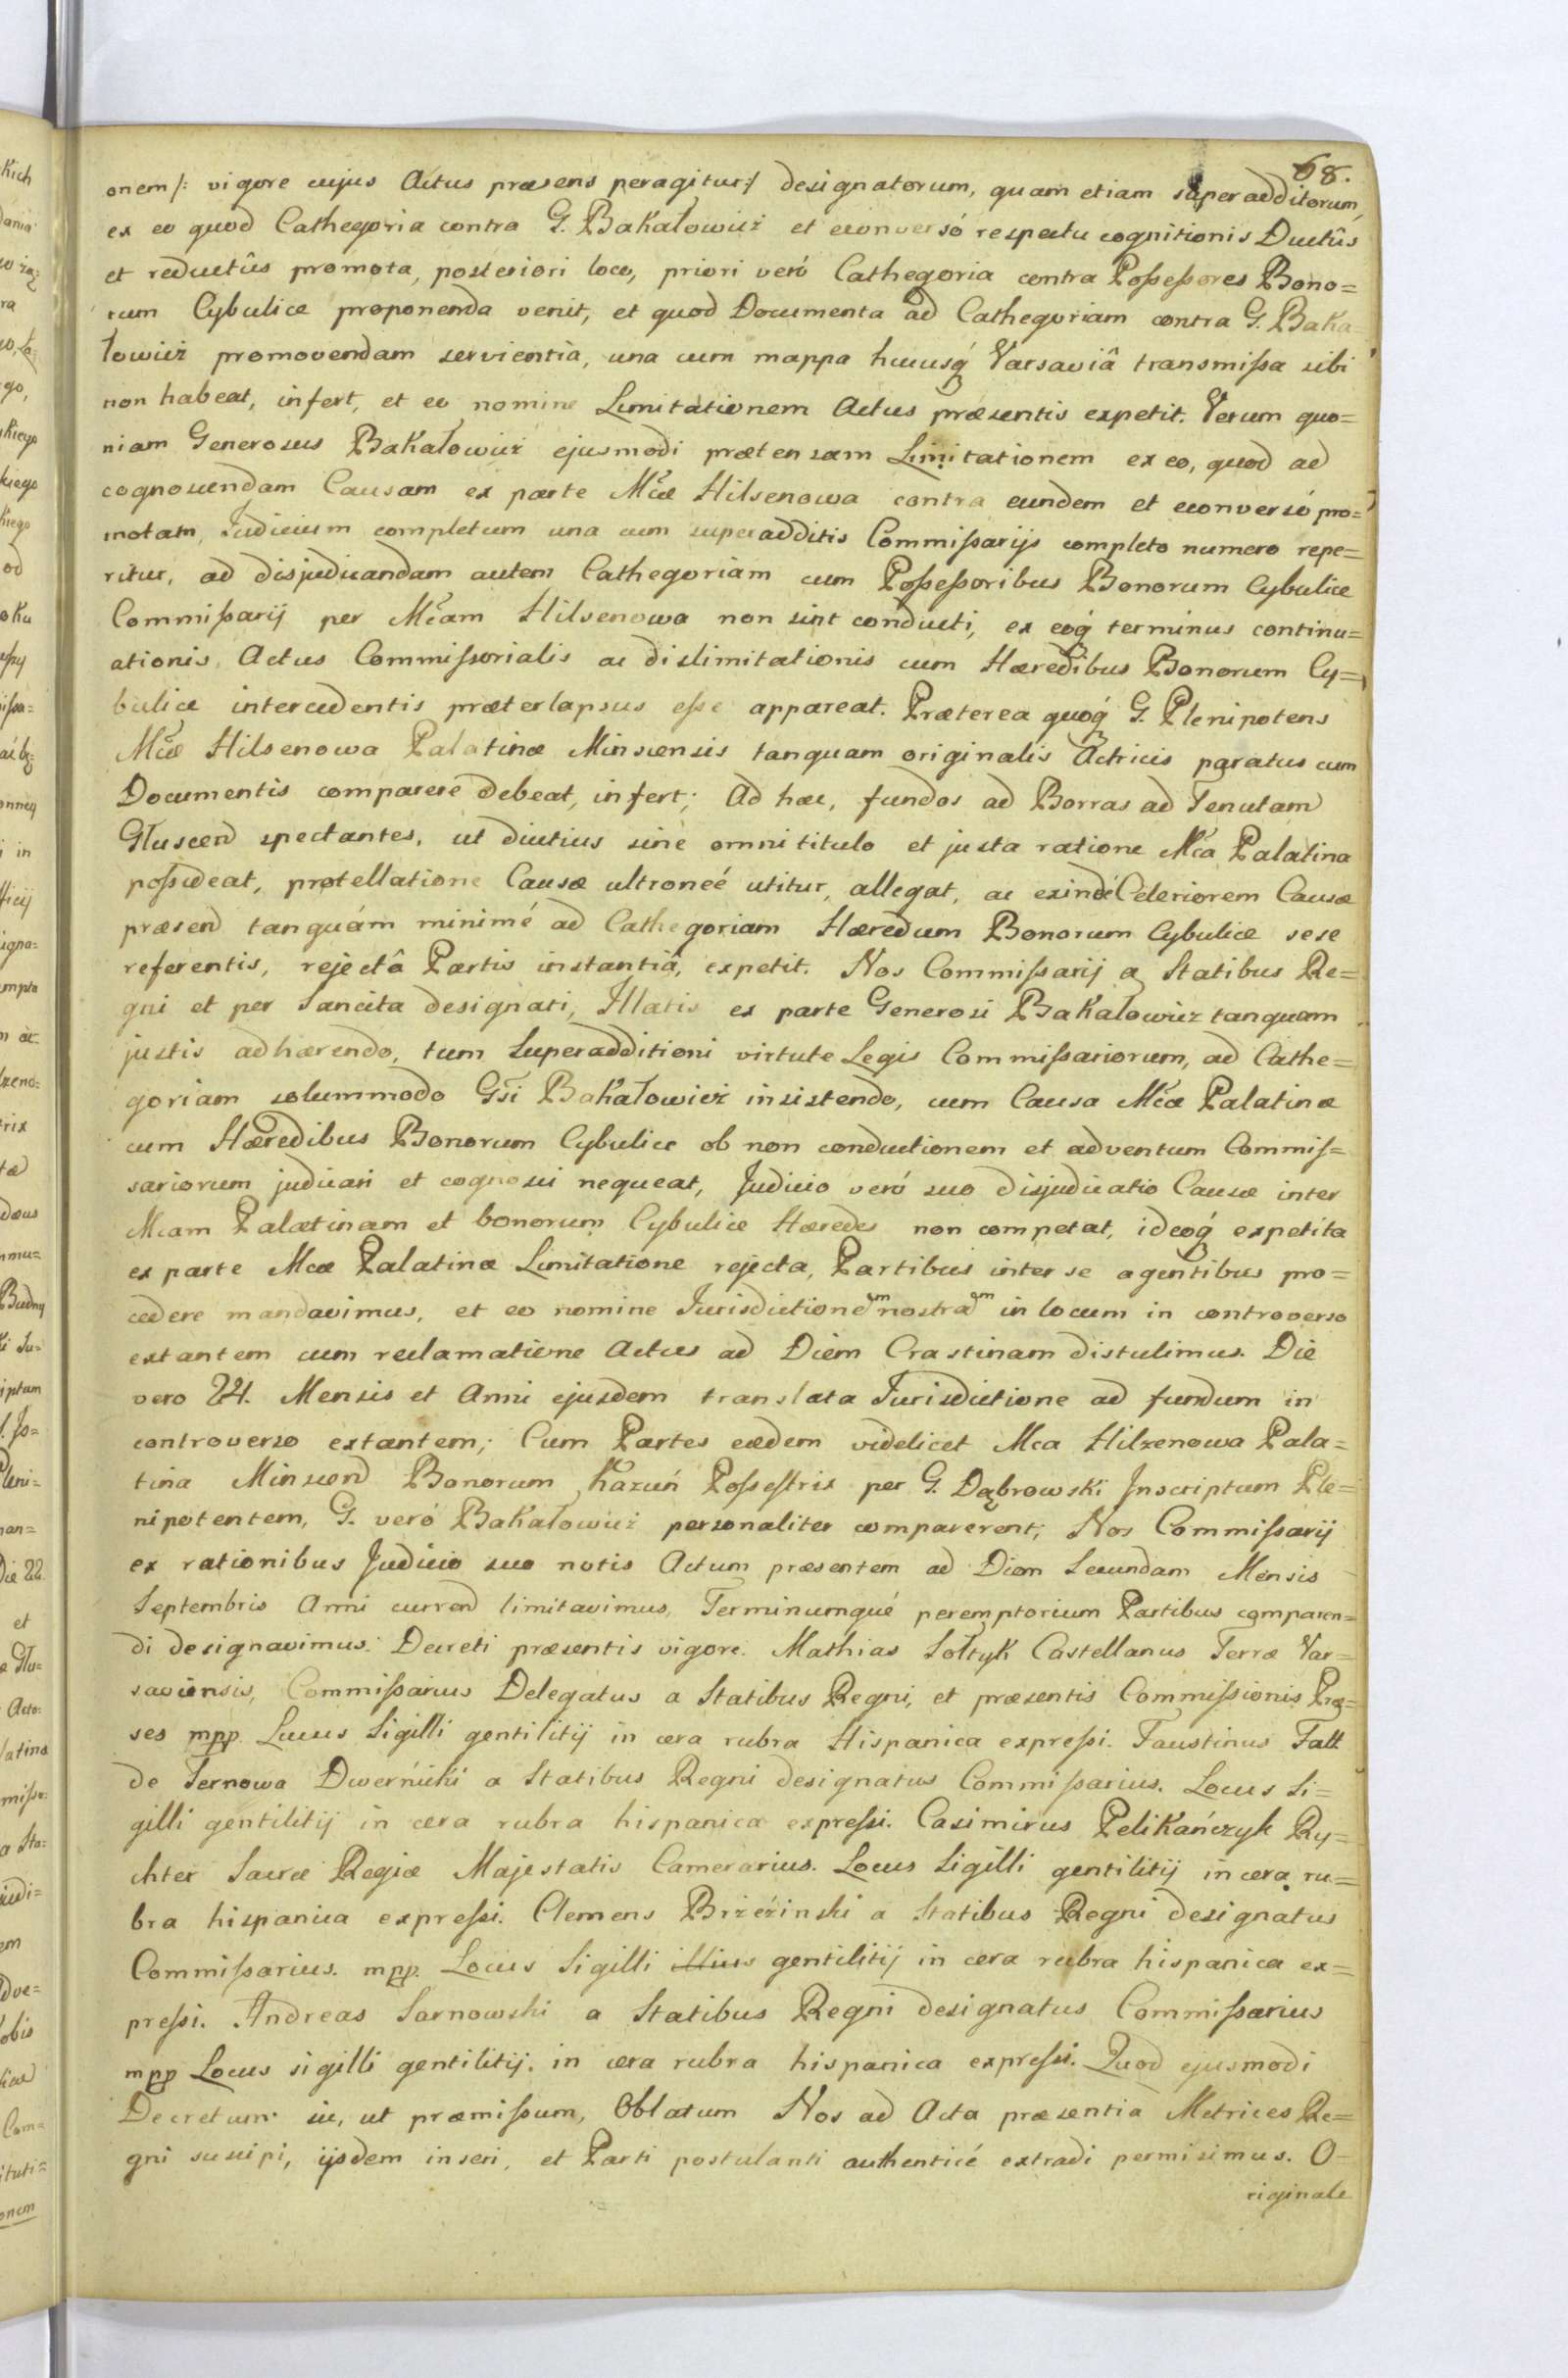 68.
onem /: vigore cujus Actus præsens peragitur :/ designatorum, quam etiam superadditorum,
ex eo quod Cathegoria contra G. Bakałowicz et econversó respectu cognitionis Ductûs
et reductûs promota, posteriori loco, priori veró Cathegoria contra Poßeßores Bono=
rum Cybulice proponenda venit, et quod Documenta ad Cathegoriam contra G. Baka=
łowicz promovendam servientia, una cum mappa hucusq́ Varsaviâ transmißa sibi
non habeat, infert, et eo nomine Limitationem Actus præsentis expetit. Verum quo=
niam Generosus Bakałowicz ejusmodi prætensam Limitationem ex eo, quod ad
cognoscendam Causam ex parte Mcæ Hilsenowa contra eundem et econversó pro=
motam, Judicium completum una cum superadditis Commißarijs completo numero repe=
ritur, ad disjudicandam autem Cathegoriam cum Poßeßoribus Bonorum Cybulice
Commißarij per Mcam Hilsenowa non sint conducti, ex eoq́ terminus continu=
ationis Actus Commißorialis ac dislimitationis cum Hæredibus Bonorum Cy=
bulice intercedentis præterlapsus eße appareat. Præterea quoq́ G. Plenipotens
Mcæ Hilsenowa Palatinæ Minscensis tanquam originalis Actricis paratus cum
Documentis comparere debeat, infert; Ad hæc, fundos ad Borras ad Tenutam
Gluscen spectantes, ut diutius sine omni titulo et justa ratione Mca Palatina
poßideat, protellatione Causæ ultroneé utitur, allegat, ac exindé Celeriorem Causæ
præsen tanquám minimé ad Cathegoriam Hæredum Bonorum Cybulice sese
referentis, rejectâ Partis instantiâ, expetit. Nos Commißarij a Statibus Re=
gni et per Sancita designati, Illatis ex parte Generosi Bakałowicz tanquam
justis adhærendo, tum Superadditioni virtute Legis Commißariorum, ad Cathe=
goriam solummodo Gsi Bakałowicz insistendo, cum Causa Mcæ Palatinæ
cum Hæredibus Bonorum Cybulice ob non conductionem et adventum Commis=
sariorum judicari et cognosci nequeat, Judicio veró suo disjudicatio Causæ inter
Mcam Palatinam et bonorum Cybulice Hæredes non competat, ideoq́ expetita
ex parte Mcæ Palatinæ Limitatione rejecta, Partibus inter se agentibus pro=
cedere mandavimus, et eo nomine Jurisdictionem nostram in locum in controverso
extantem cum reclamatione Actus ad Diem Crastinam distulimus. Die
vero 24. Mensis et Anni ejusdem translata Jurisdictione ad fundum in
controverso extantem; Cum Partes eædem videlicet Mca Hilzenowa Pala=
tina Minscen Bonorum Kazuń Poßeßtrix per G. Dąbrowski Inscriptum Ple=
nipotentem, G. veró Bakałowicz personaliter comparerent; Nos Commißarij
ex rationibus Judicio suo notis Actum præsentem ad Diem Secundam Mensis
Septembris Anni curren limitavimus, Terminumqué peremptorium Partibus comparen=
di designavimus. Decreti præsentis vigore. Mathias Sołtyk Castellanus Terræ Var=
saviensis, Commißarius Delegatus a Statibus Regni, et præsentis Commißionis Præ=
ses mpp. Locus Sigilli gentilitij in cera rubra Hispanica expreßi. Faustinus Fatt
de Ternowa Dwernicki a Statibus Regni designatus Commißarius. Locus Si=
gilli gentilitij in cera rubra hispanica expreßi. Casimirus Pelikańczyk Ry=
chter Sacræ Regiæ Majestatis Camerarius. Locus Sigilli gentilitij in cera ru=
bra hispanica expreßi. Clemens Brzeziński a Statibus Regni designatus
Commißarius. mpp. Locus Sigilli gentilitij in cera rubra hispanica ex=
preßi. Andreas Sarnowski a Statibus Regni designatus Commißarius
mpp Locus sigilli gentilitij. in cera rubra hispanica expreßi. Quod ejusmodi
Decretum sic, ut præmißum, Oblatum Nos ad Acta præsentia Metrices Re=
gni suscipi, ijsdem inseri, et Parti postulanti authenticé extradi permisimus. O=
riginale